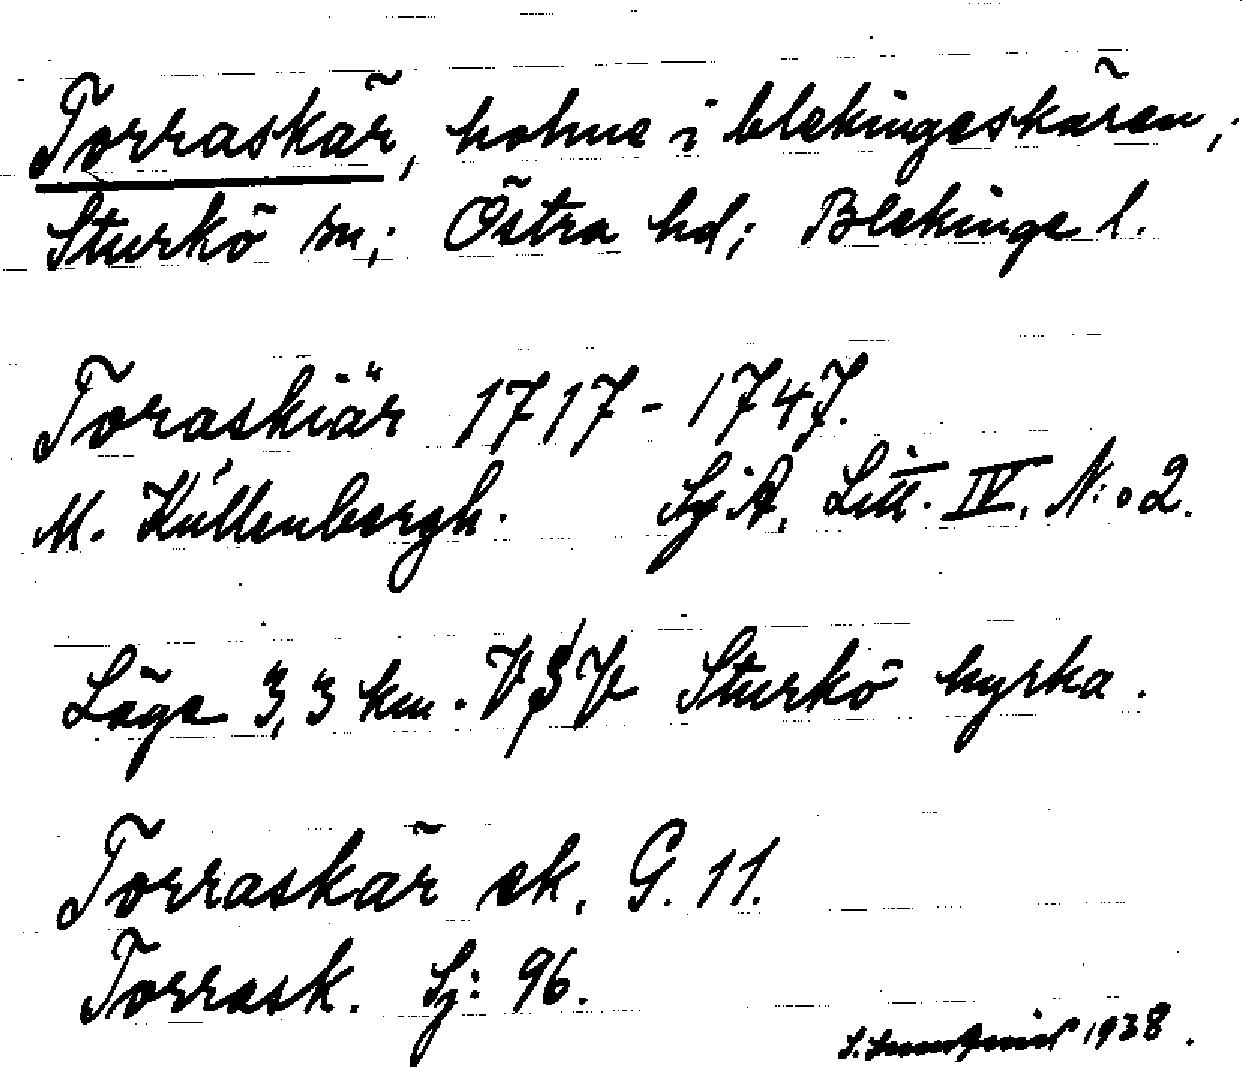 Torraskär, holme i blekingeskären,;
Sturkö sn; Östra hd; Blekinge l.
Toraskiär 1717-1747.
M. Küllenbergh. SjA. Litt. IV. N:o 2.
Läge 3,3 km. VSV Sturkö kyrka.
Torraskär ek. G. 11.
Torrask. Sj: 96.
1938.